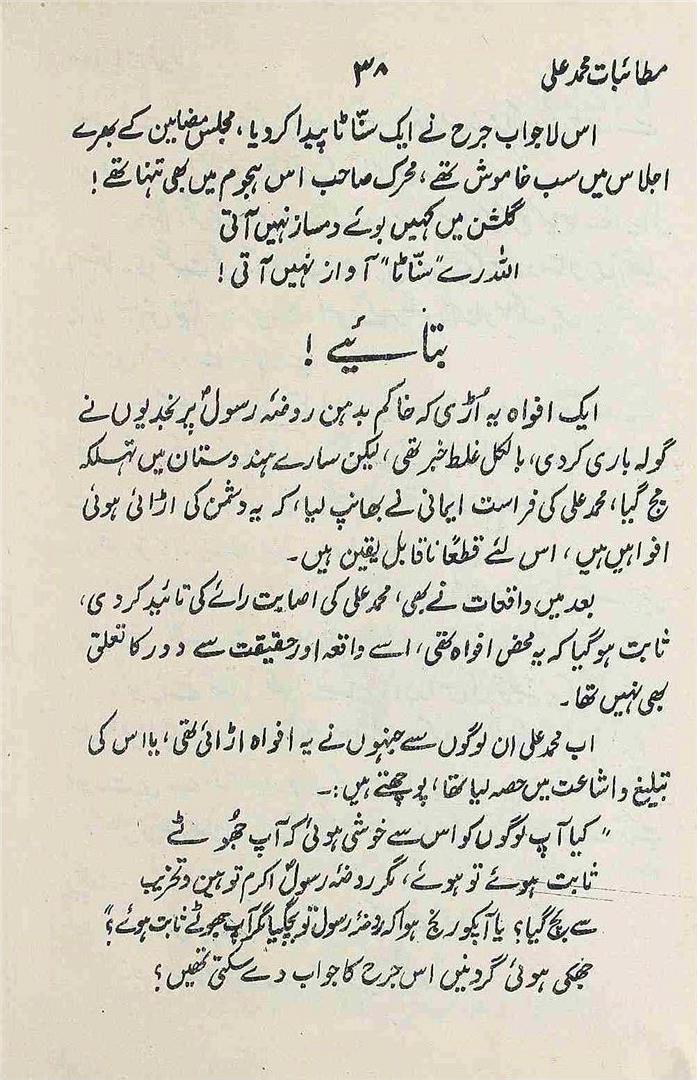 مطائبات محمد علی
۳۸
اس لاجواب جرح نے ایک سنّاٹا پیدا کردیا، مجلس مضامین کے بھرے
اجلاس میں سب خاموش تھے، محرک صاحب اس ہجوم میں بھی تنہا تھے!
گلشن میں کہیں بوئے دمساز نہیں آتی
اللہ رے "سنّاٹا" آواز نہیں آتی!
بتائیے!
ایک افواہ یہ اُڑی کہ خاکم بدہن روضۂ رسولؐ پر نجدیوں نے
گولہ باری کردی، بالکل غلط خبر تھی، لیکن سارے ہندوستان میں تہلکہ
مچ گیا، محمد علی کی فراست ایمانی نے بھانپ لیا، کہ یہ دشمن کی اڑائی ہوئی
افواہیں ہیں، اس لئے قطعًا ناقابل یقین ہیں۔
بعد میں واقعات نے بھی، محمد علی کی اصابت رائے کی تائید کردی،
ثابت ہوگیا کہ یہ محض افواہ تھی، اسے واقعہ اور حقیقت سے دور کا تعلق
بھی نہیں تھا۔
اب محمد علی ان لوگوں سے جنہوں نے یہ افواہ اڑائی تھی، یا اس کی
تبلیغ و اشاعت میں حصہ لیا تھا، پوچھتے ہیں:۔
"کیا آپ لوگوں کو اس سے خوشی ہوئی کہ آپ جھُوٹے
ثابت ہوئے تو ہوئے، مگر روضۂ رسولؐ اکرم توہین و تخریب
سے بچ گیا؟ یا آپکو رنج ہوا کہ روضۂ رسول تو بچگیا مگر آپ جھوٹے ثابت ہوئے؟"
جھکی ہوئی گردنیں اس جرح کا جواب دے سکتی تھیں؟